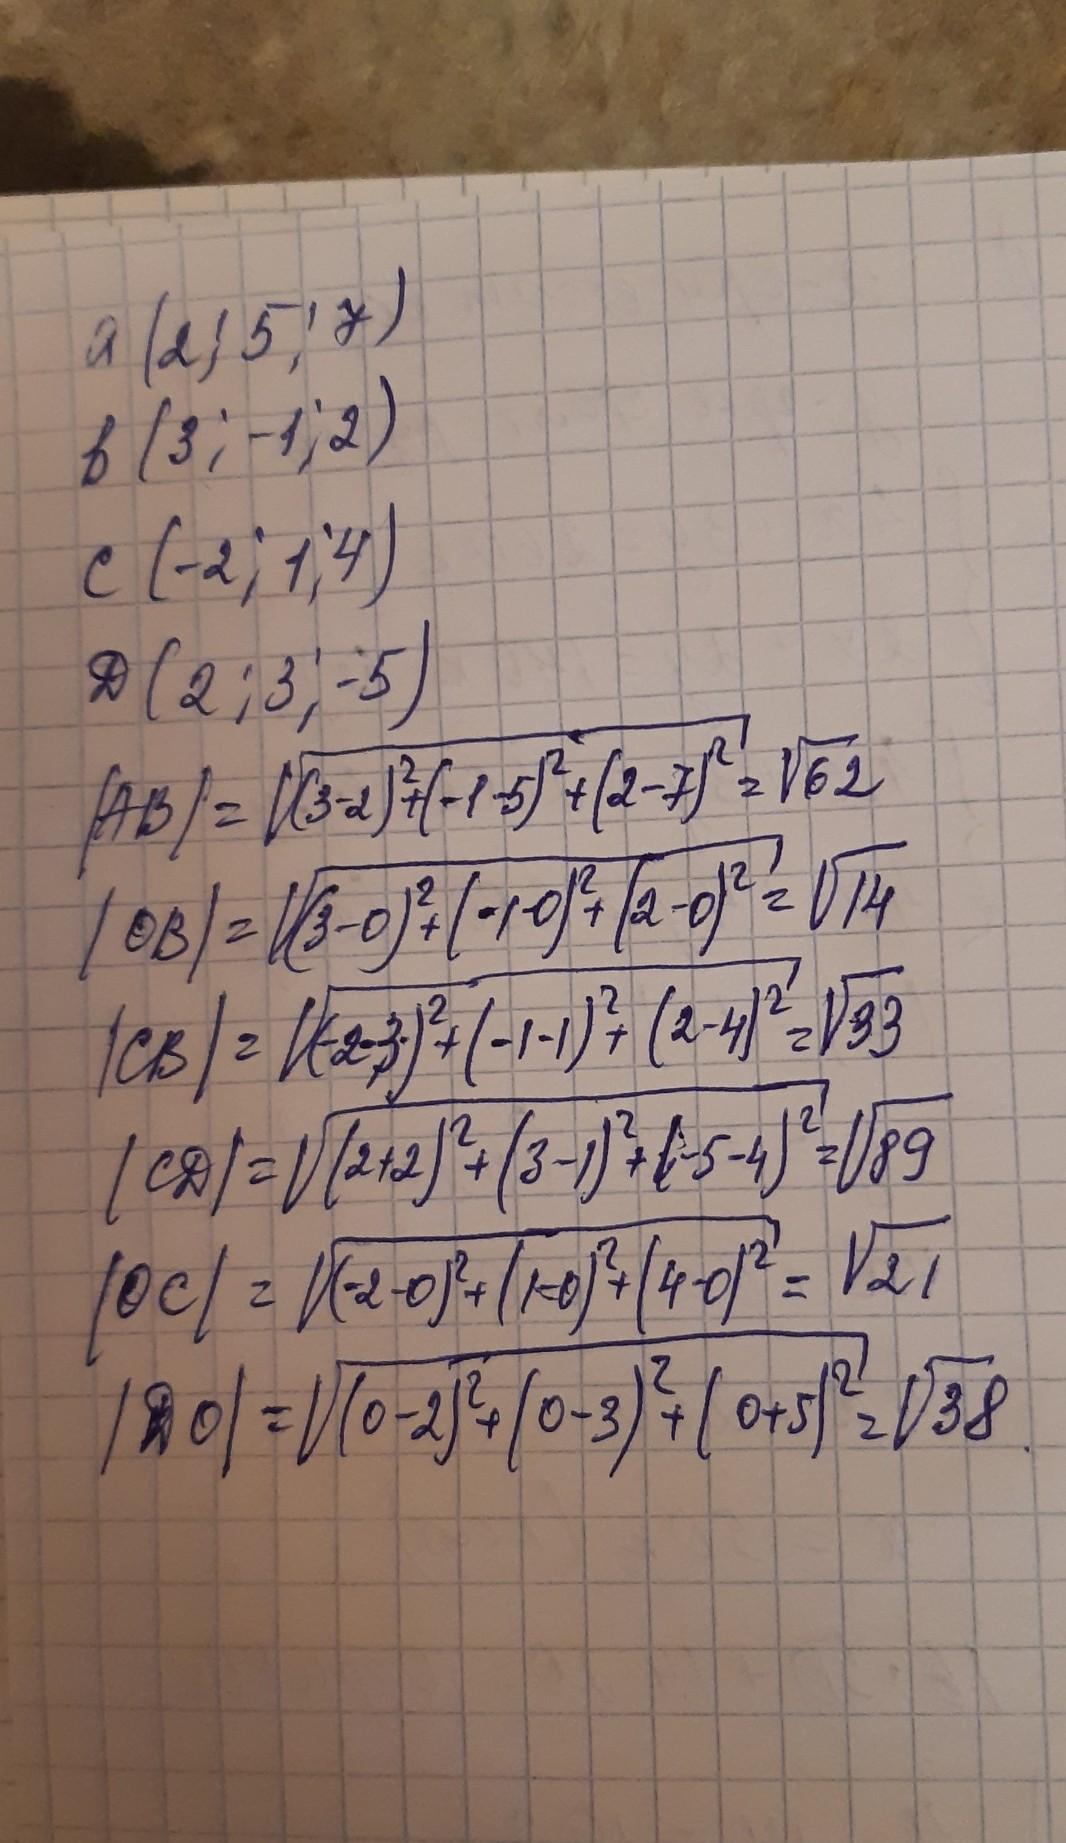 A (2; 5; 7)
B (3; -1; 2)
C (-2; 1; 4)
D (2; 3; -5)
|AB| = √((3-2)²+(-1-5)²+(2-7)²) = √62
|OB| = √((3-0)²+(-1-0)²+(2-0)²) = √14
|CB| = √((-2-3)²+(-1-1)²+(2-4)²) = √33
|CD| = √((2+2)²+(3-1)²+(-5-4)²) = √89
|OC| = √((-2-0)²+(1-0)²+(4-0)²) = √21
|DO| = √((0-2)²+(0-3)²+(0+5)²) = √38